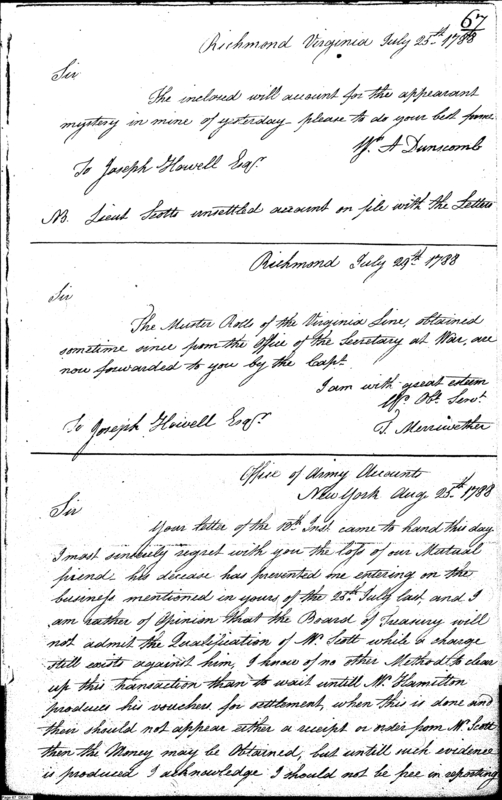 67
Richmond Virginia July 25th 1788
Sir
The inclosed will account for the appearant
mystery in mine of yesterday please to do your best
Yrs A Dunscomb
To Joseph Howell Esqr.
NB. Lieut Scotts unsettled account on file with the Letters
Richmond July 29th 1788
Sir
The Muster Rolls of the Virginia Line, obtained
sometime since from the Office of the Secretary at War, are
now forwarded to you by the Capt.
I am with great esteem
Yr. Obt. Servt.
To Joseph Howell Esqr.
T. Merriwether
Office of Army Accounts
New York Aug 25th 1788
Sir
Your letter of the 10th Inst came to hand this day
I most sincerely regret with you the loss of our Mutual
friend his decease has prevented me entering on the
business mentioned in yours of the 25th July last and I
am rather of Opinion that the Board of Treasury will
not admit the Qualification of Mr. Scott while a charge
still exists against him, I know of no other Method to clear
up this transaction than to wait untill Mr. Hamilton
produces his vouchers for settlement, when this is done and
their should not appear either a receipt or order from Mr. Scott
then the Money may be Obtained, but untill such evidence
is produced I acknowledge I should not be free in reporting